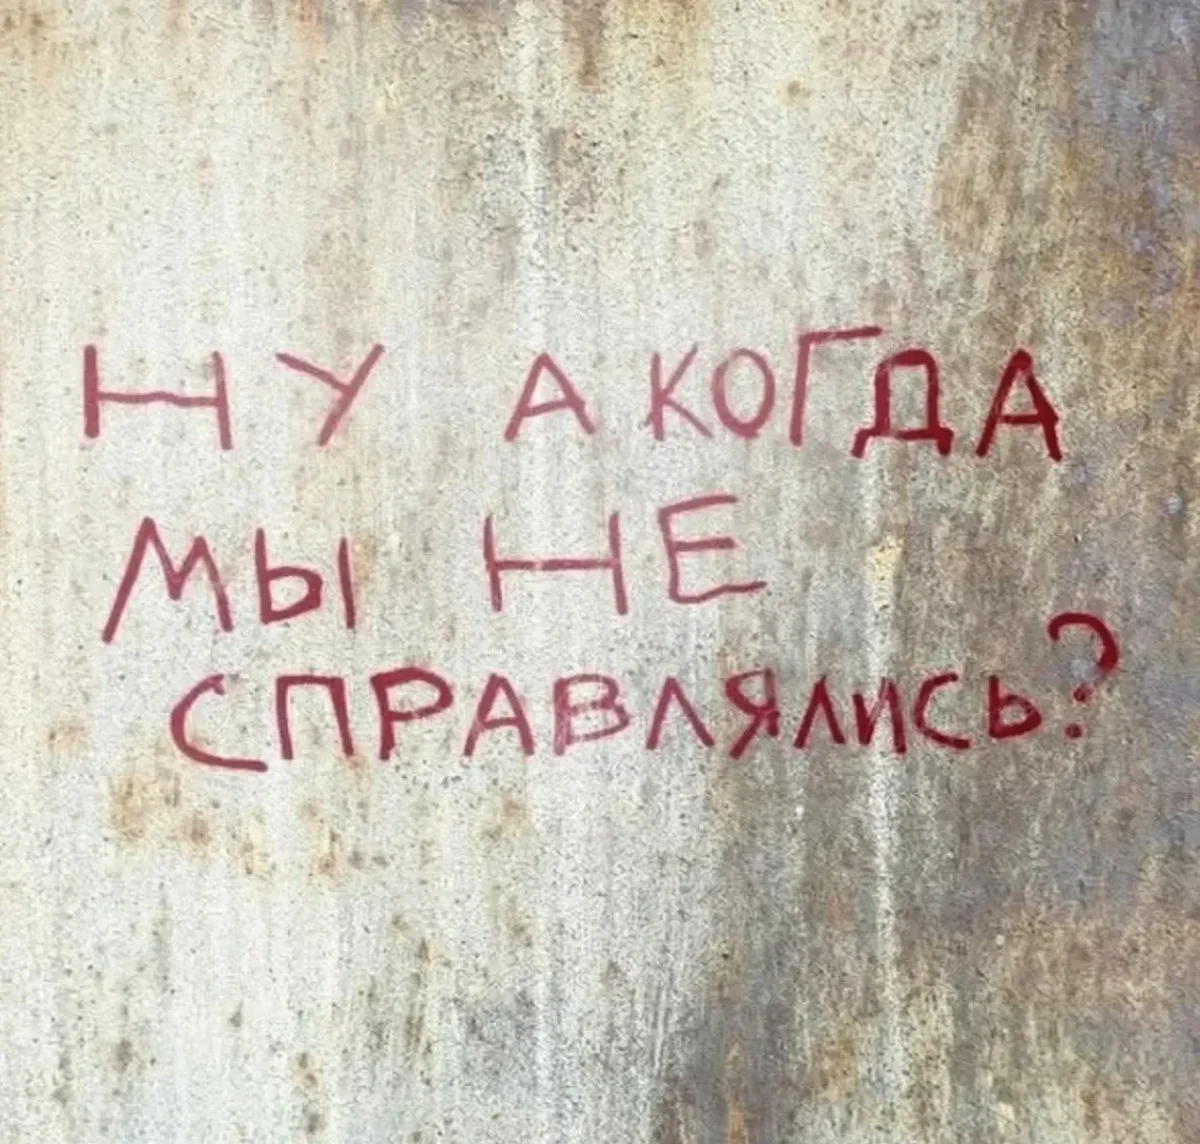 НУ А КОГДА
МЫ НЕ
СПРАВЛЯЛИСЬ?